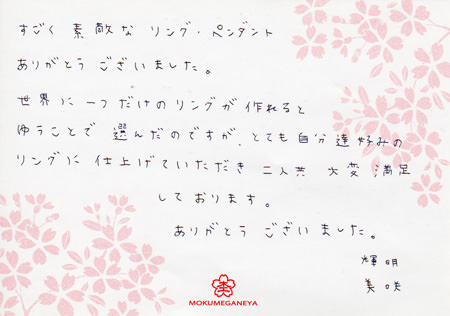 すごく 素敵な リング・ペンダント
ありがとう ございました。
世界に一つだけのリングが作れると
ゆうことで 選んだのですが、とても自分達好みの
リングに 仕上げていただき 二人共 大変 満足
しております。
ありがとう ございました。
輝明
美咲
MOKUMEGANEYA